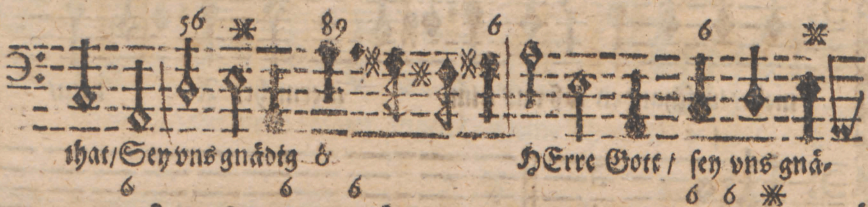 56 ※ 89 6 6 ※
that/Sey vns gnädig ô HErre Gott/ sey vns gnä-
6 6 6 6 6 ※